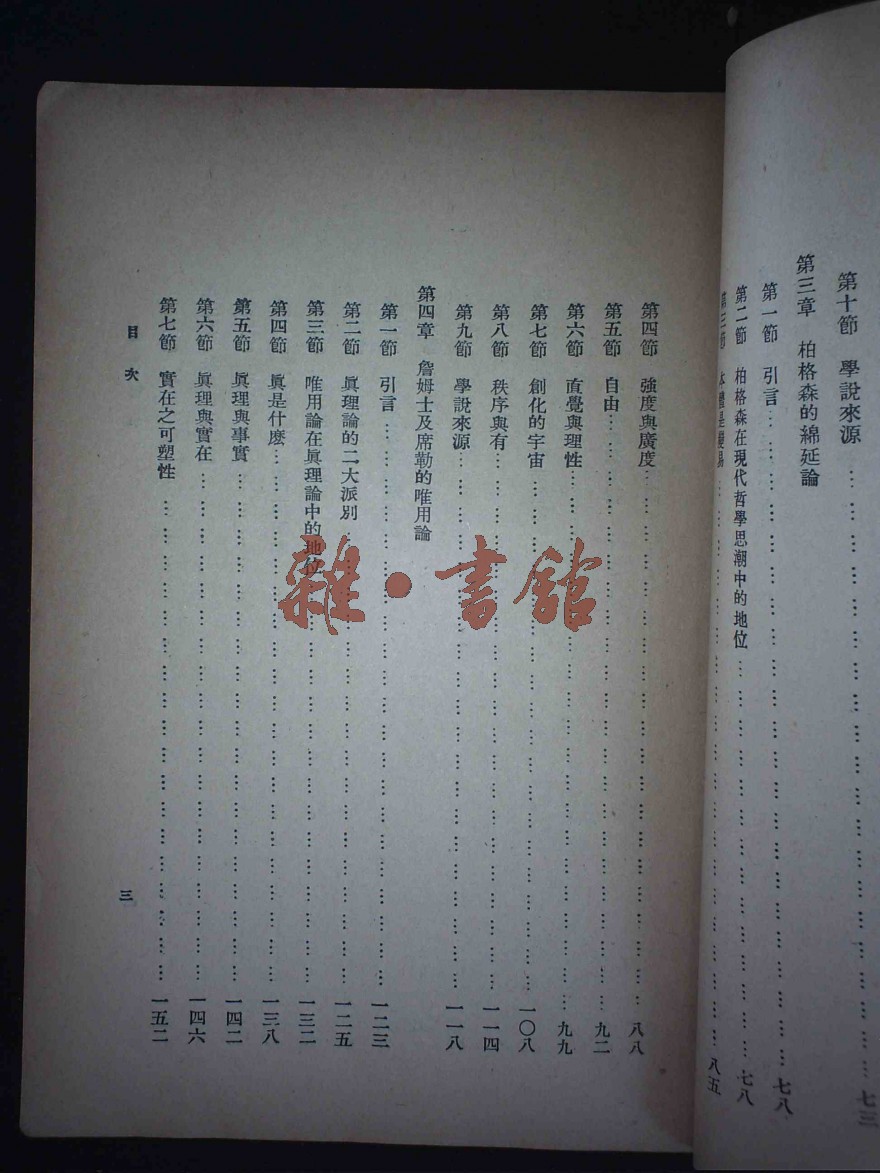 第十節　學說來源 … … … … … … … … … … … … … … … … 七三
第三章　柏格森的綿延論
第一節　引言 … … … … … … … … … … … … … … … … … … 七八
第二節　柏格森在現代哲學思潮中的地位 … … … … … … … … … … … 七八
第三節　本體是變易 … … … … … … … … … … … … … … … … 八五
第四節　強度與廣度 … … … … … … … … … … … … … … … … 八八
第五節　自由 … … … … … … … … … … … … … … … … … … 九二
第六節　直覺與理性 … … … … … … … … … … … … … … … … 九九
第七節　創化的宇宙 … … … … … … … … … … … … … … … … 一〇八
第八節　秩序與有 … … … … … … … … … … … … … … … … … 一一四
第九節　學說來源 … … … … … … … … … … … … … … … … … 一一八
第四章　詹姆士及席勒的唯用論
第一節　引言 … … … … … … … … … … … … … … … … … … 一二三
第二節　眞理論的二大派別 … … … … … … … … … … … … … … 一二五
第三節　唯用論在眞理論中的地位 … … … … … … … … … … … … 一三二
第四節　眞是什麽 … … … … … … … … … … … … … … … … … 一三八
第五節　眞理與事實 … … … … … … … … … … … … … … … … 一四二
第六節　眞理與實在 … … … … … … … … … … … … … … … … 一四六
第七節　實在之可塑性 … … … … … … … … … … … … … … … 一五二
目次
三
雜·書館